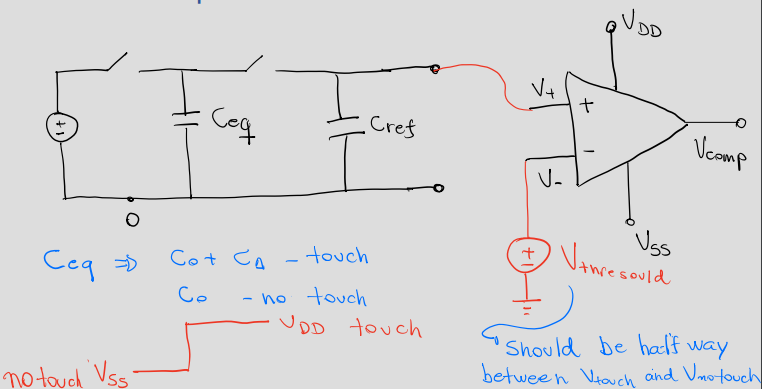 VDD
V+
+
Ceq
Cref
±
−
Vcomp
V-
O
VSS
±
Vthresould
Ceq ⇒ Co + CΔ - touch
Co - no touch
VDD touch
no touch VSS
Should be half way
between Vtouch and Vno touch